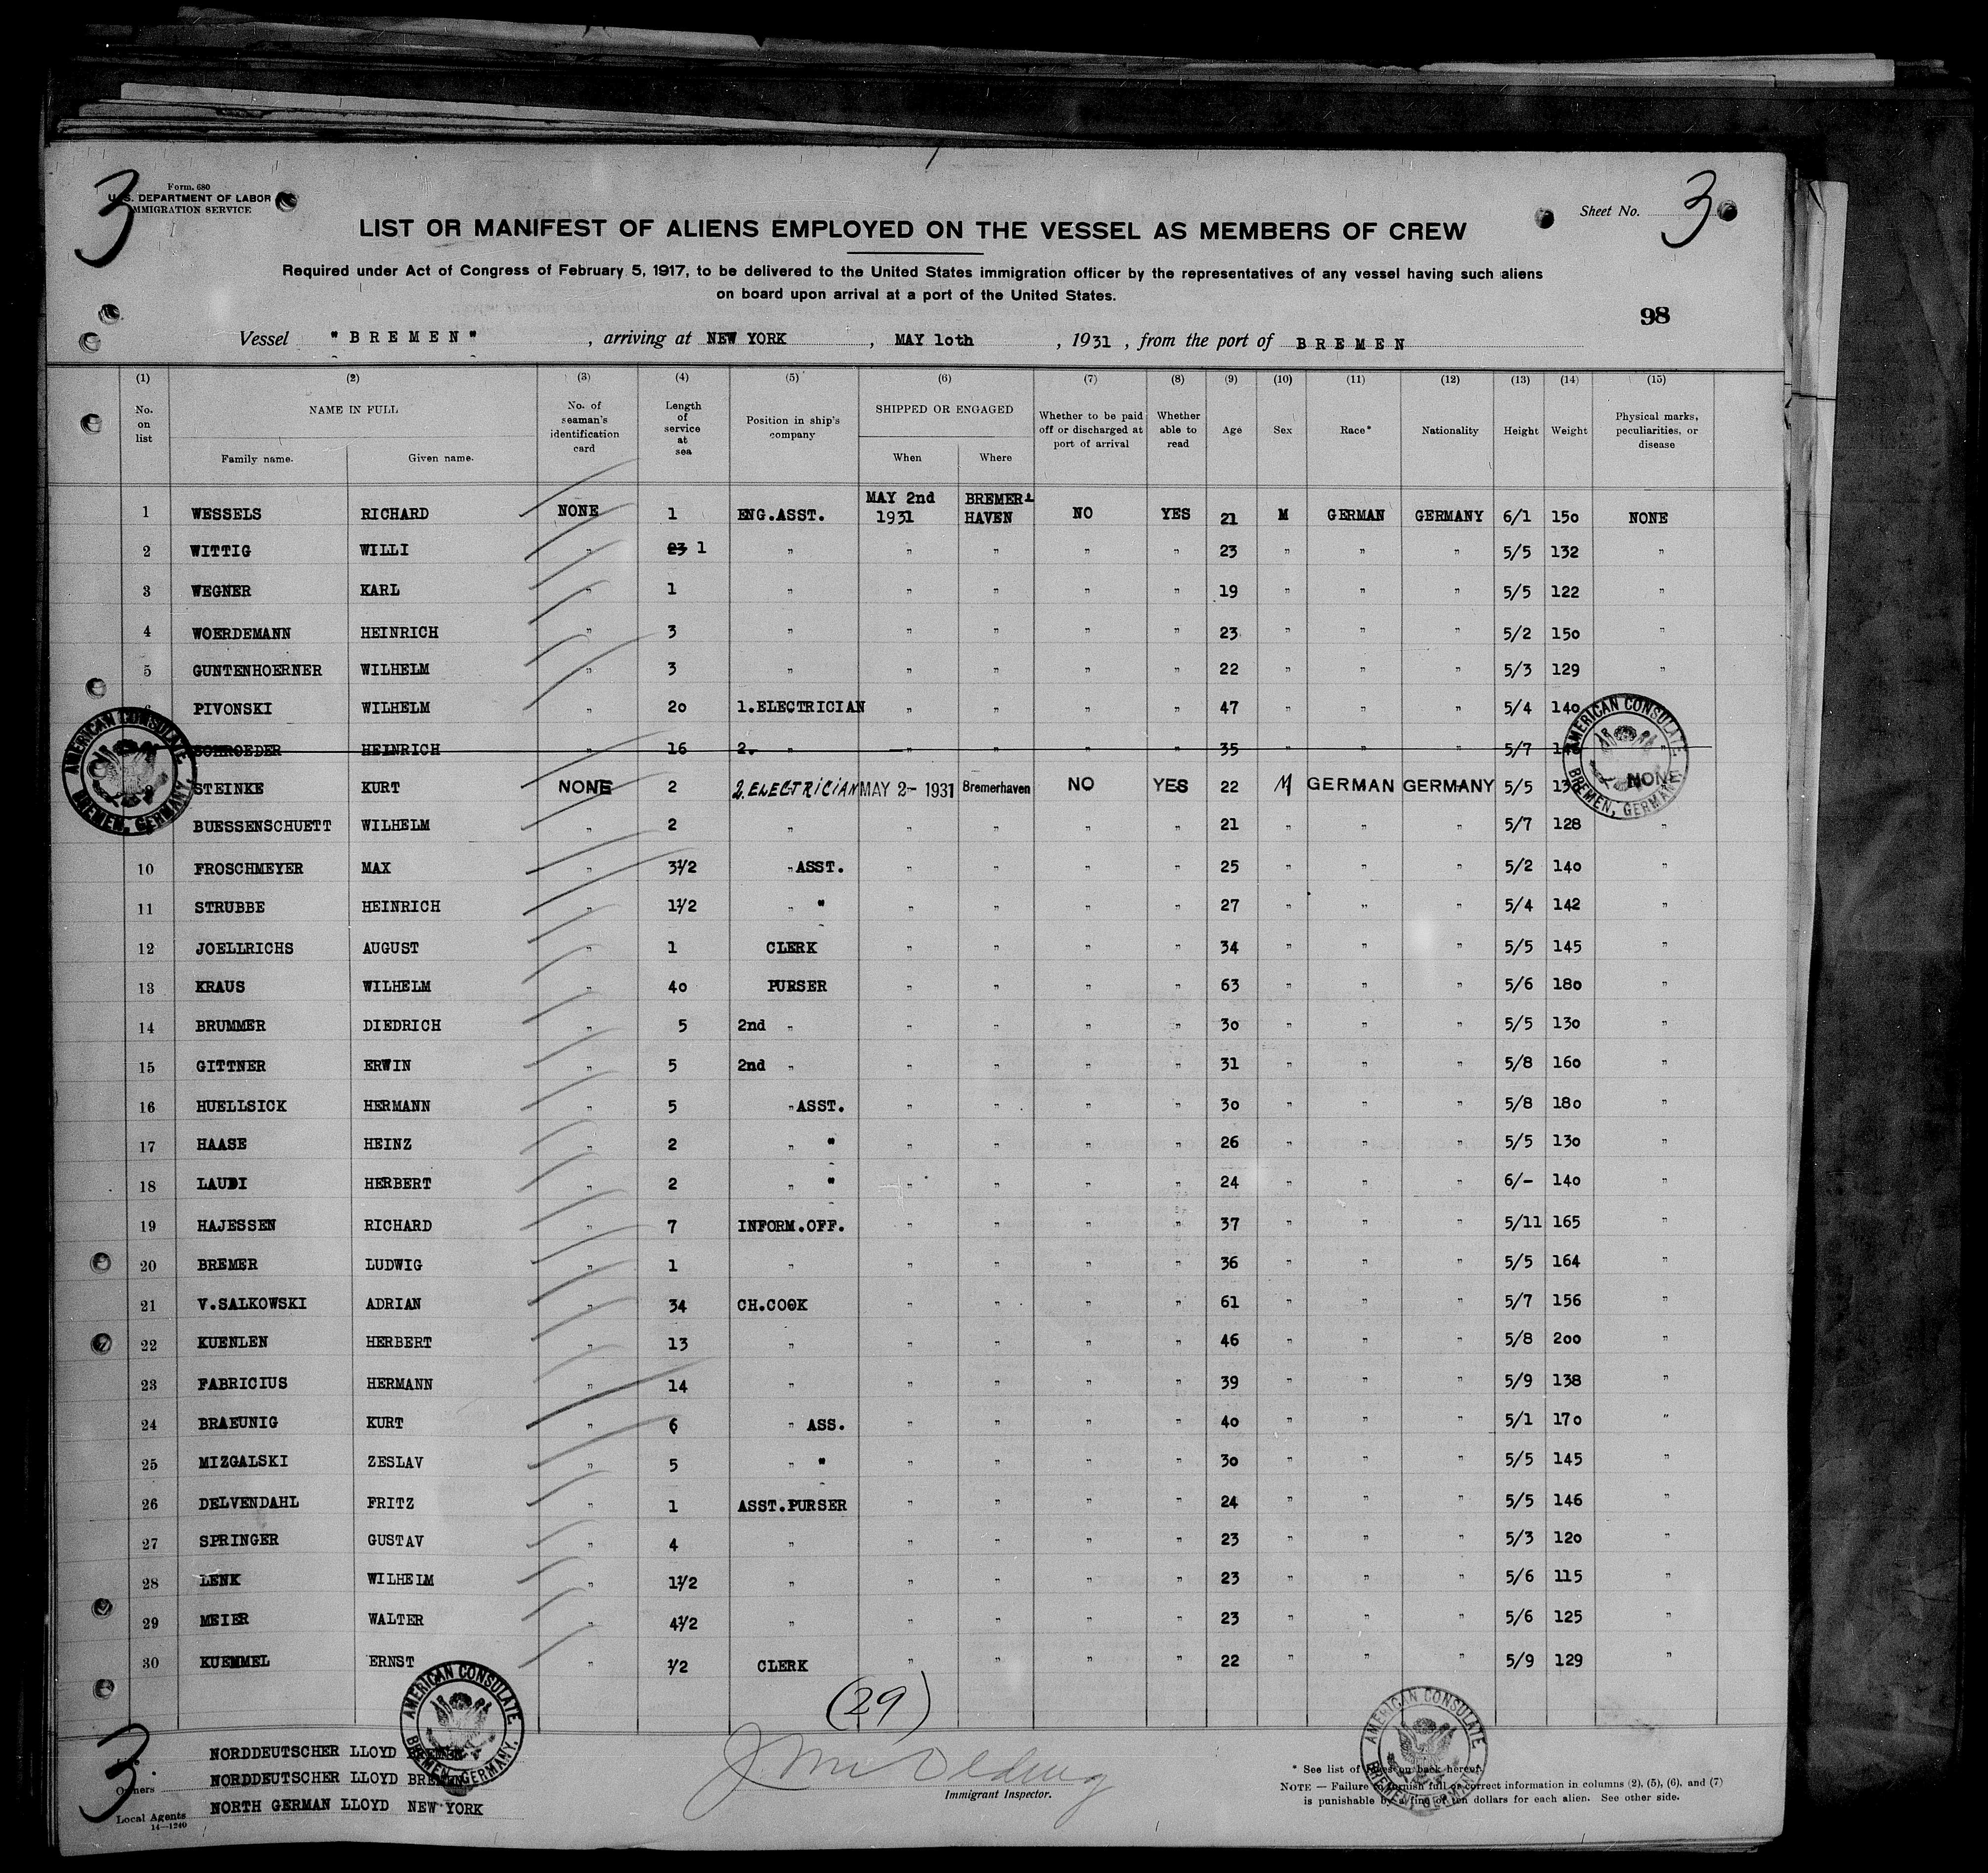 3
Form. 680
U. S. DEPARTMENT OF LABOR
IMMIGRATION SERVICE
Sheet No. 3
LIST OR MANIFEST OF ALIENS EMPLOYED ON THE VESSEL AS MEMBERS OF CREW
Required under Act of Congress of February 5, 1917, to be delivered to the United States immigration officer by the representatives of any vessel having such aliens
on board upon arrival at a port of the United States.
98
Vessel "BREMEN" , arriving at NEW YORK , MAY 10th , 1931 , from the port of BREMEN
(1) (2) (3) (4) (5) (6) (7) (8) (9) (10) (11) (12) (13) (14) (15)
No. on list NAME IN FULL Family name. Given name. No. of seaman's identification card Length of service at sea Position in ship's company SHIPPED OR ENGAGED When Where Whether to be paid off or discharged at port of arrival Whether able to read Age Sex Race* Nationality Height Weight Physical marks, peculiarities, or disease
1 WESSELS RICHARD NONE 1 ENG.ASST. MAY 2nd 1931 BREMER- HAVEN NO YES 21 M GERMAN GERMANY 6/1 150 NONE
2 WITTIG WILLI " 23 1 " " " " " 23 " " " 5/5 132 "
3 WEGNER KARL " 1 " " " " " 19 " " " 5/5 122 "
4 WOERDEMANN HEINRICH " 3 " " " " " 23 " " " 5/2 150 "
5 GUNTENHOERNER WILHELM " 3 " " " " " 22 " " " 5/3 129 "
6 PIVONSKI WILHELM " 20 1.ELECTRICIAN " " " " 47 " " " 5/4 140
SCHROEDER HEINRICH " 16 2. " " " " " 35 " " " 5/7
8 STEINKE KURT NONE 2 2.ELECTRICIAN MAY 2- 1931 Bremerhaven NO YES 22 M GERMAN GERMANY 5/5 NONE
BUESSENSCHUETT WILHELM " 2 " " " " " 21 " " " 5/7 128 "
10 FROSCHMEYER MAX " 3½ " ASST. " " " " 25 " " " 5/2 140 "
11 STRUBBE HEINRICH " 1½ " " " " " " 27 " " " 5/4 142 "
12 JOELLRICHS AUGUST " 1 CLERK " " " " 34 " " " 5/5 145 "
13 KRAUS WILHELM " 40 PURSER " " " " 63 " " " 5/6 180 "
14 BRUMMER DIEDRICH " 5 2nd " " " " " 30 " " " 5/5 130 "
15 GITTNER ERWIN " 5 2nd " " " " " 31 " " " 5/8 160 "
16 HUELLSICK HERMANN " 5 " ASST. " " " " 30 " " " 5/8 180 "
17 HAASE HEINZ " 2 " " " " " " 26 " " " 5/5 130 "
18 LAUDI HERBERT " 2 " " " " " " 24 " " " 6/- 140 "
19 HAJESSEN RICHARD " 7 INFORM.OFF. " " " " 37 " " " 5/11 165 "
20 BREMER LUDWIG " 1 " " " " " 36 " " " 5/5 164 "
21 V.SALKOWSKI ADRIAN " 34 CH.COOK " " " " 61 " " " 5/7 156 "
22 KUENLEN HERBERT " 13 " " " " " 46 " " " 5/8 200 "
23 FABRICIUS HERMANN " 14 " " " " " 39 " " " 5/9 138 "
24 BRAEUNIG KURT " 6 " ASS. " " " " 40 " " " 5/1 170 "
25 MIZGALSKI ZESLAV " 5 " " " " " " 30 " " " 5/5 145 "
26 DELVENDAHL FRITZ " 1 ASST.PURSER " " " " 24 " " " 5/5 146 "
27 SPRINGER GUSTAV " 4 " " " " " 23 " " " 5/3 120 "
28 LENK WILHELM " 1½ " " " " " 23 " " " 5/6 115 "
29 MEIER WALTER " 4½ " " " " " 23 " " " 5/6 125 "
30 KUEMMEL ERNST " ½ CLERK " " " " 22 " " " 5/9 129 "
AMERICAN CONSULATE BREMEN, GERMANY.
AMERICAN CONSULATE BREMEN, GERMANY.
AMERICAN CONSULATE BREMEN, GERMANY.
AMERICAN CONSULATE BREMEN, GERMANY.
(29)
3
NORDDEUTSCHER LLOYD BREMEN
Owners NORDDEUTSCHER LLOYD BREMEN
Local Agents NORTH GERMAN LLOYD NEW YORK
14—1240
Immigrant Inspector.
* See list of races on back hereof.
NOTE — Failure to furnish full or correct information in columns (2), (5), (6), and (7)
is punishable by a fine of ten dollars for each alien. See other side.